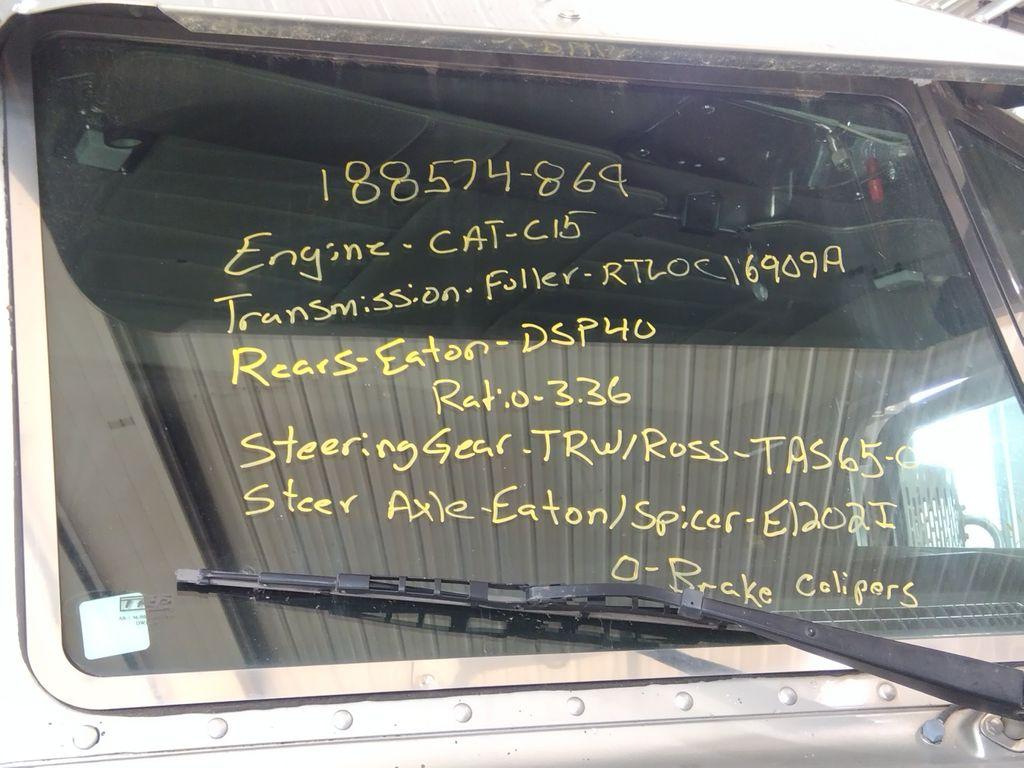 188574-869
Engine - CAT-C15
Transmission - Fuller - RTLOC16909A
Rears - Eaton - DSP40
Ratio - 3.36
Steering Gear - TRW/Ross - TAS65-
Steer Axle - Eaton/Spicer - E1202I
0 - Brake Calipers